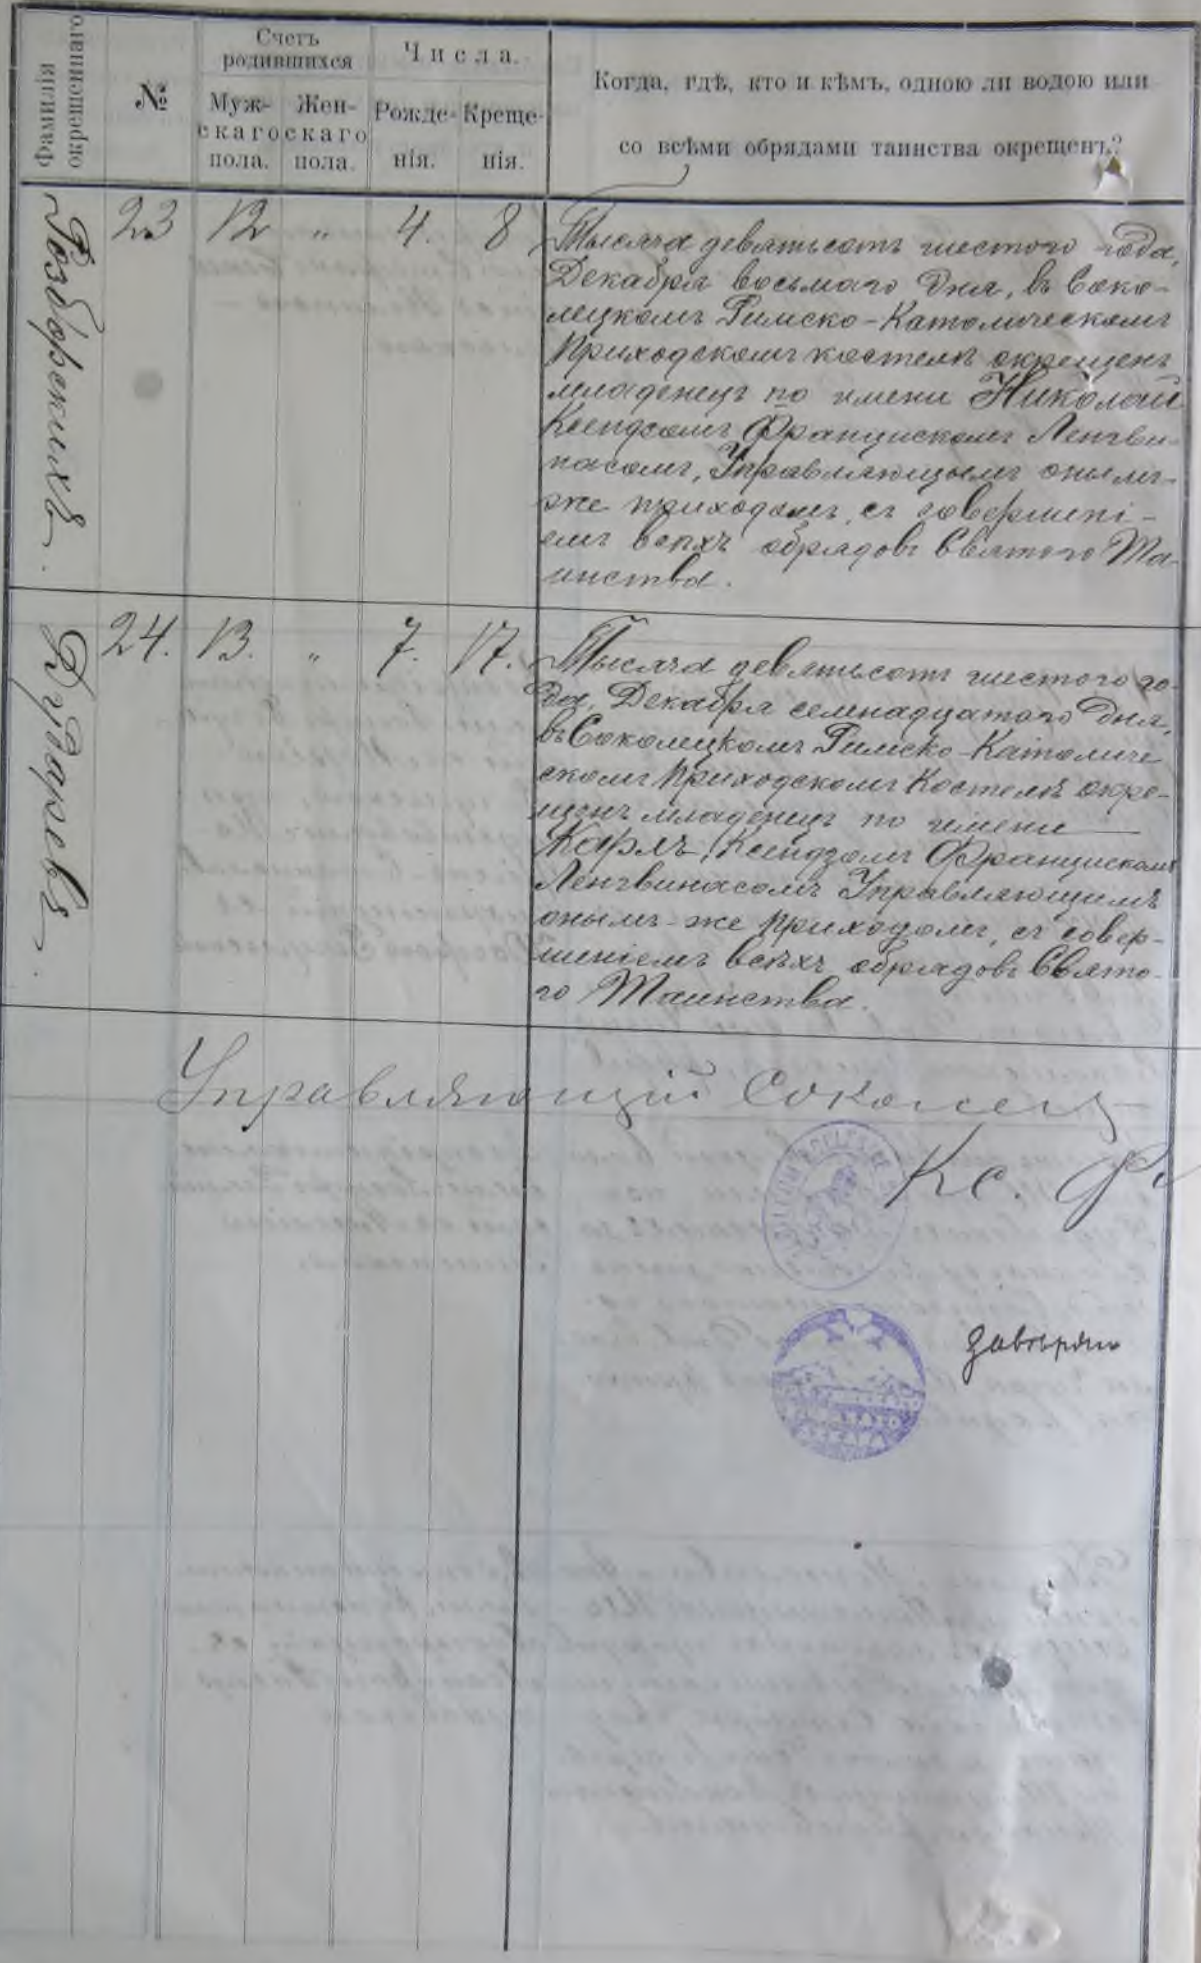 Фамилія
окрещеннаго
№
Счетъ
родившихся
Муж-
скаго
пола.
Жен-
скаго
пола.
Числа.
Рожде-
нія.
Креще-
нія.
Когда, гдѣ, кто и кѣмъ, одною ли водою или
со всѣми обрядами таинства окрещенъ?
Розборскихъ.
23 12 " 4. 8
Тысяча девятьсотъ шестого года,
Декабря восьмаго дня, въ Соко-
лецкомъ Римско-Католическомъ
приходскомъ костелѣ окрещенъ
младенецъ по имени Николай
Ксендзомъ Францискомъ Ленгви-
насомъ, Управляющымъ онымъ-
же приходомъ, съ совершені-
емъ всѣхъ обрядовъ Святого Та-
инства.
24. 13. " 7. 17.
Тысяча девятьсотъ шестого го-
да, Декабря семнадцатого дня,
въ Соколецкомъ Римско-Католиче
скомъ приходскомъ Костелѣ окре-
щенъ младенецъ по имени
Карлъ, Ксендзомъ Францискомъ
Ленгвинасомъ Управляющимъ
онымъ-же приходомъ, съ совер-
шеніемъ всѣхъ обрядовъ Свято-
го Таинства.
Управляющій Соколец
Кс. Ф
Завѣряю